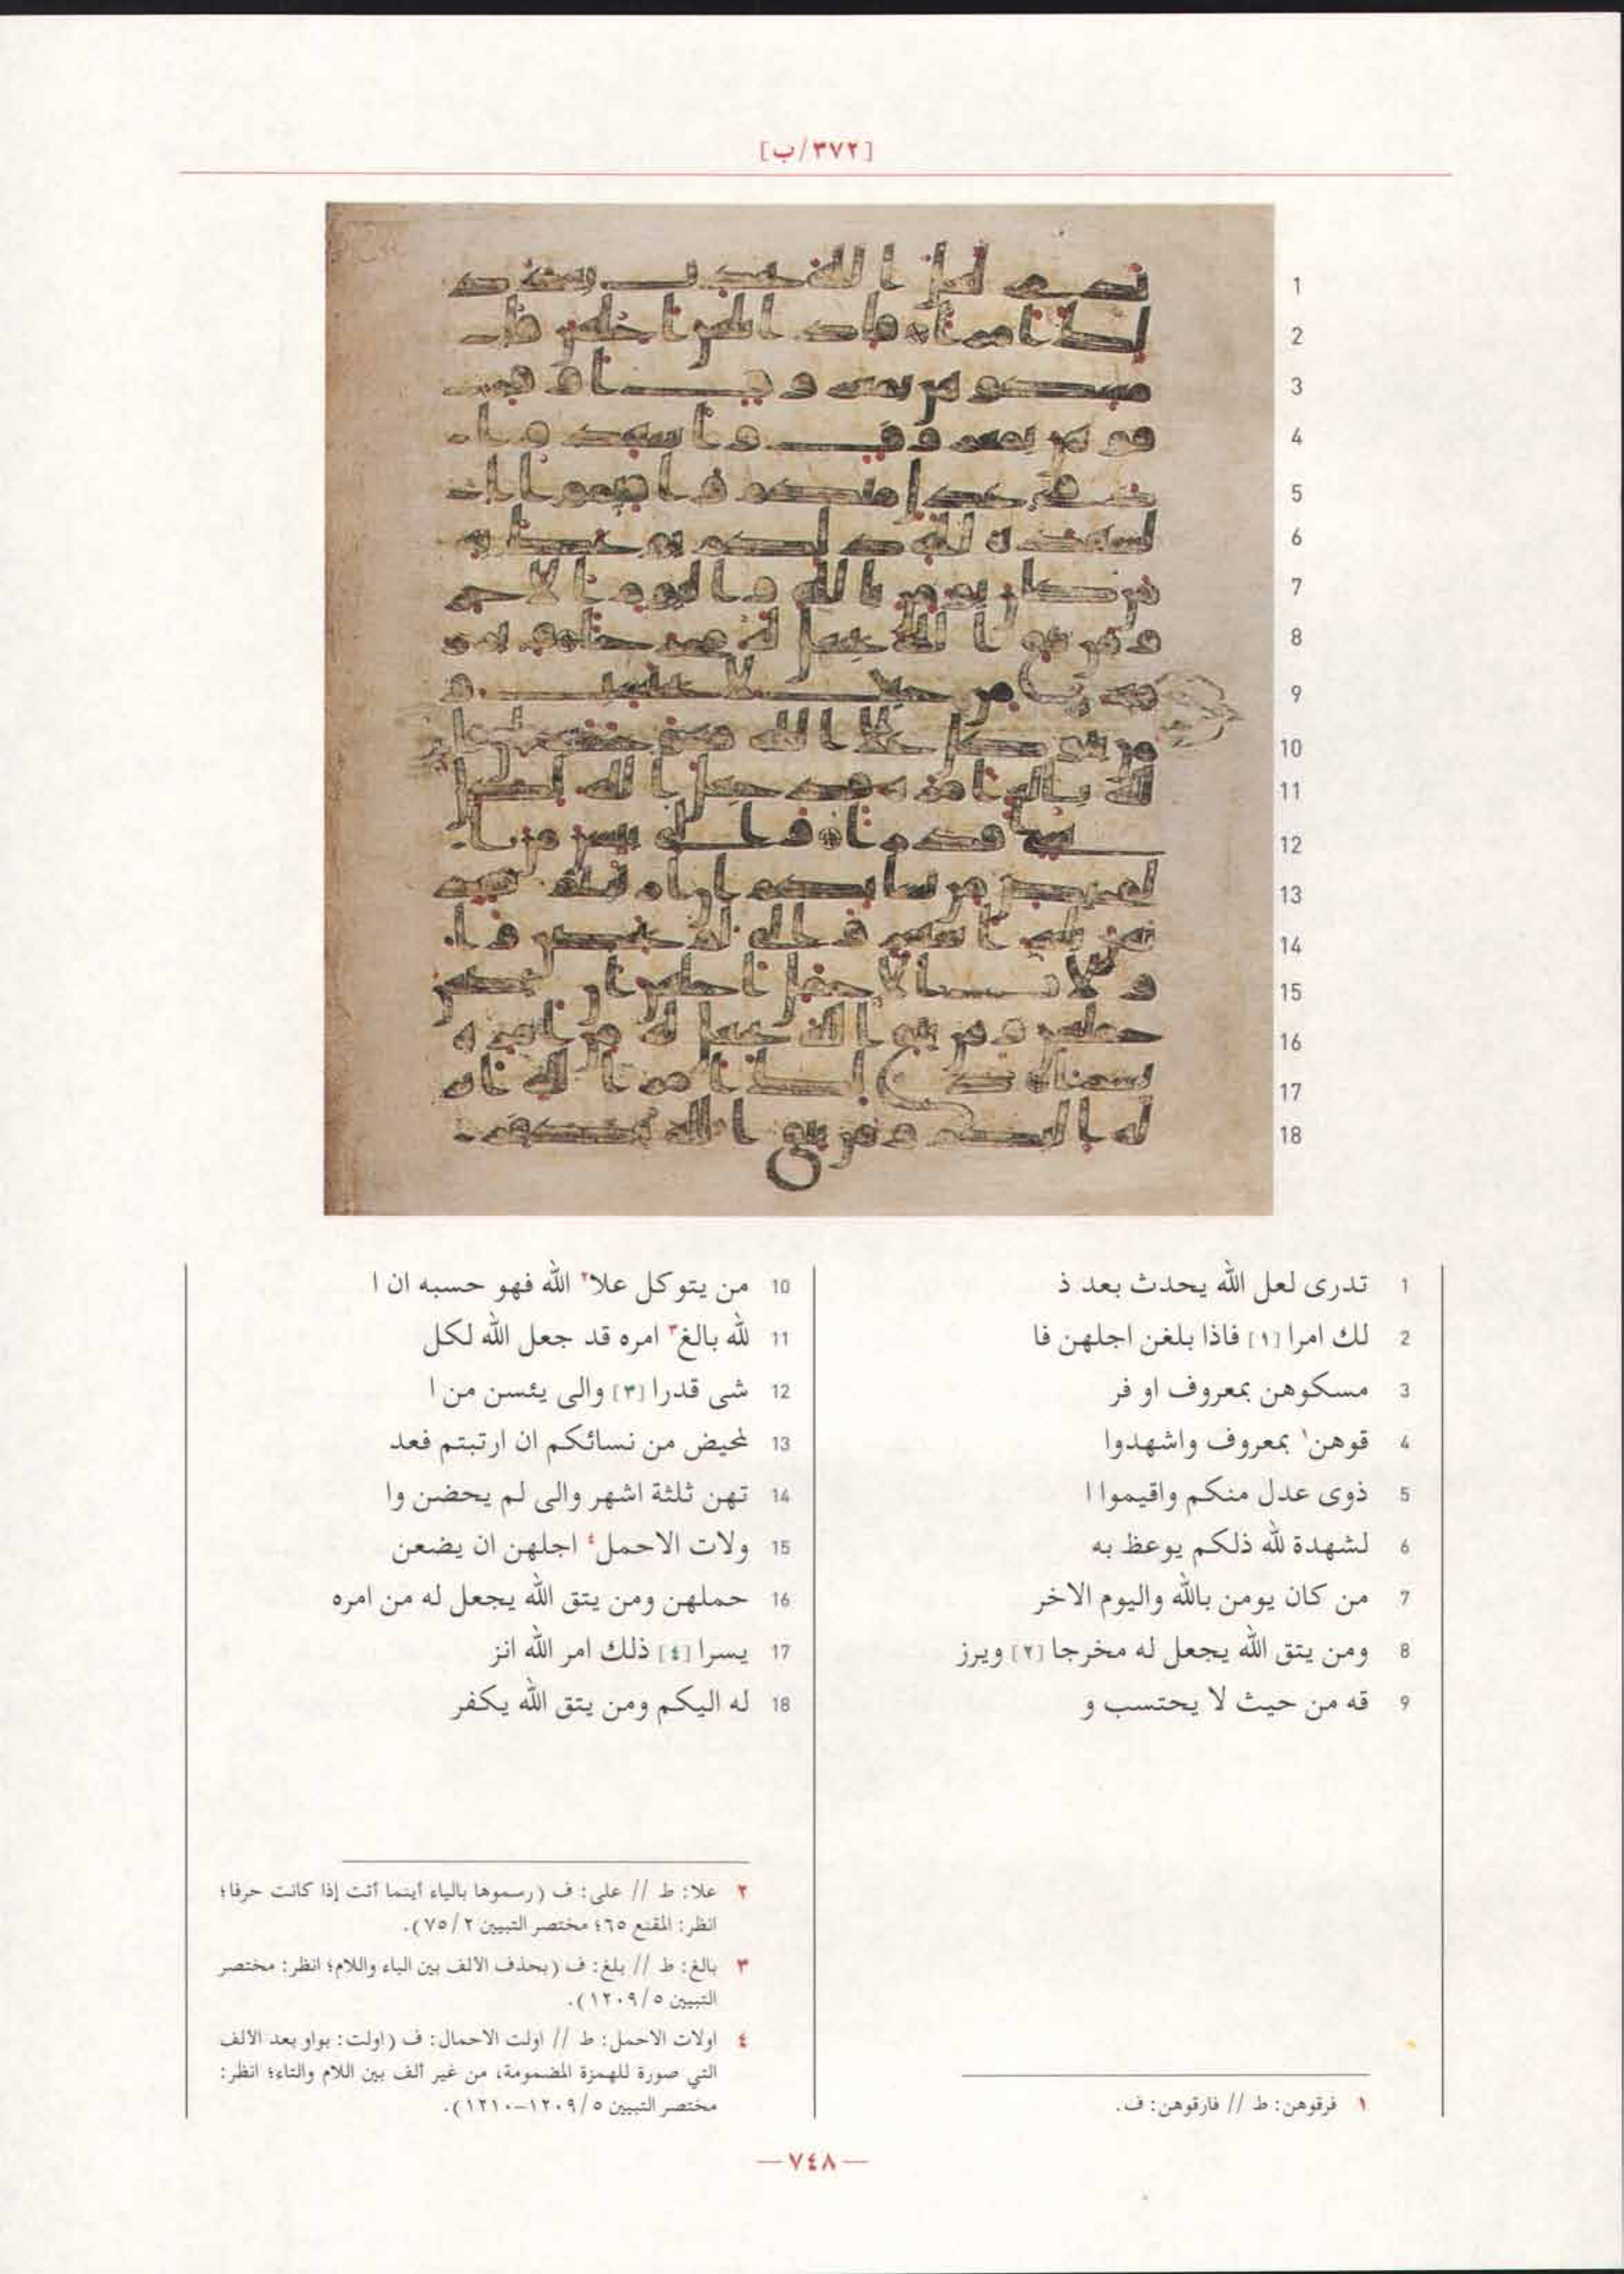 [٣٧٢/ب]
1 تدرى لعل الله يحدث بعد ذ
2 لك امرا [١] فاذا بلغن اجلهن فا
3 مسكوهن بمعروف او فر
4 قوهن١ بمعروف واشهدوا
5 ذوى عدل منكم واقيموا ا
6 لشهدة لله ذلكم يوعظ به
7 من كان يومن بالله واليوم الاخر
8 ومن يتق الله يجعل له مخرجا [٢] ويرز
9 قه من حيث لا يحتسب و
١ فرقوهن: ط // فارقوهن: ف.
10 من يتوكل علا٢ الله فهو حسبه ان ا
11 لله بالغ٣ امره قد جعل الله لكل
12 شى قدرا [٣] والى يئسن من ا
13 لمحيض من نسائكم ان ارتبتم فعد
14 تهن ثلثة اشهر والى لم يحضن وا
15 ولات الاحمل٤ اجلهن ان يضعن
16 حملهن ومن يتق الله يجعل له من امره
17 يسرا [٤] ذلك امر الله انز
18 له اليكم ومن يتق الله يكفر
٢ علا: ط // على: ف (رسموها بالياء أينما أتت إذا كانت حرفا؛
انظر: المقنع ٦٥؛ مختصر التبيين ٧٥/٢).
٣ بالغ: ط // بلغ: ف (بحذف الالف بين الباء واللام؛ انظر: مختصر
التبيين ١٢٠٩/٥).
٤ اولات الاحمل: ط // اولت الاحمال: ف (اولت: بواو بعد الالف
التي صورة للهمزة المضمومة، من غير ألف بين اللام والتاء؛ انظر:
مختصر التبيين ١٢٠٩/٥-١٢١٠).
—٧٤٨—